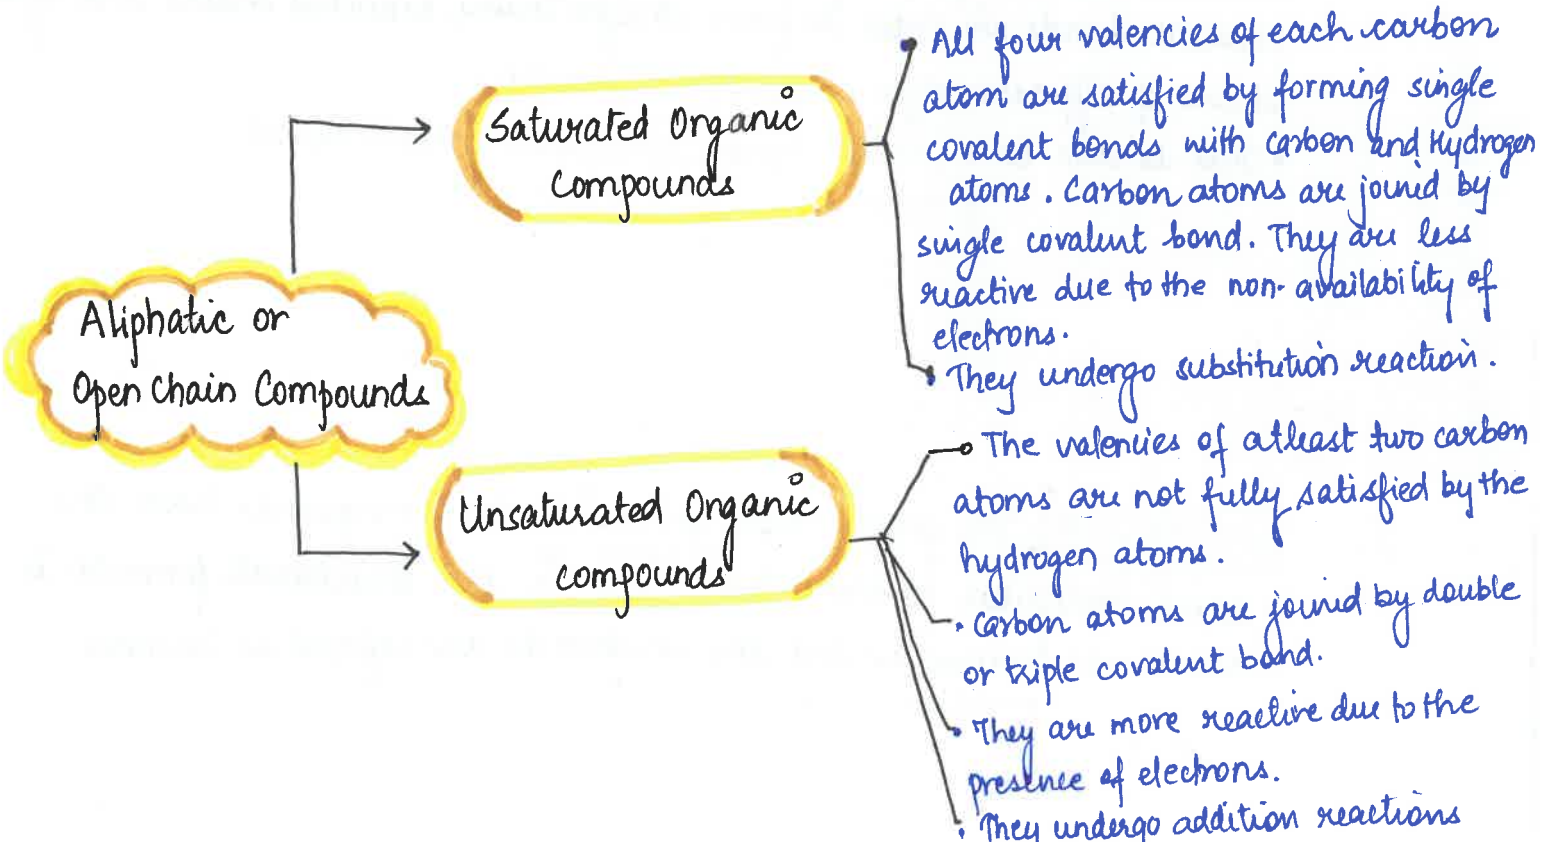 Aliphatic or
Open Chain Compounds
Saturated Organic
Compounds
All four valencies of each carbon
atom are satisfied by forming single
covalent bonds with carbon and Hydrogen
atoms. Carbon atoms are joined by
single covalent bond. They are less
reactive due to the non-availability of
electrons.
They undergo substitution reaction.
Unsaturated Organic
compounds
The valencies of atleast two carbon
atoms are not fully satisfied by the
hydrogen atoms.
Carbon atoms are joined by double
or triple covalent bond.
They are more reactive due to the
presence of electrons.
They undergo addition reactions